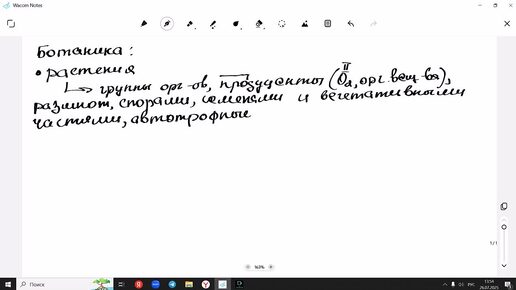 Wacom Notes
Ботаника:
• растения
↳ группы орг-ов, продуценты (O₂, орг. вещ-ва),
размнож. спорами, семенами и вегетативными
частями, автотрофные
1/1
163%
Поиск
РУС
13:54
26.07.2025